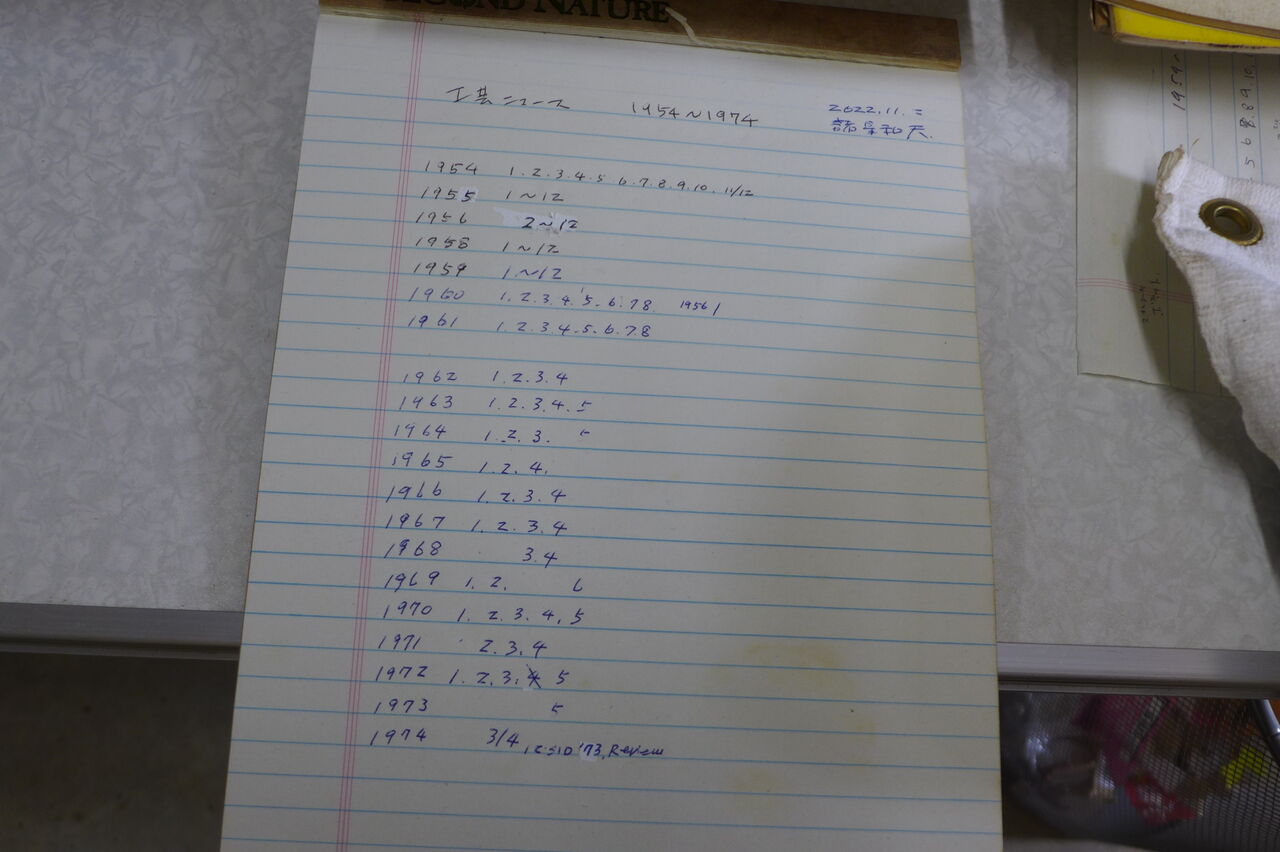 SECOND NATURE
工芸ニュース 1954~1974
2022.11.=
諸泉和天.
1954 1.2.3.4.5 6.7.8.9.10.11/12
1955 1~12
1956 2~12
1958 1~12
1959 1~12
1960 1.2.3.4.5.6.78 1956/
1961 1.2.3.4.5.6.78
1962 1.2.3.4
1963 1.2.3.4.5
1964 1.2.3. 5
1965 1.2.4.
1966 1.2.3.4
1967 1.2.3.4
1968 3.4
1969 1.2. 6
1970 1.2.3.4.5
1971 2.3.4
1972 1.2.3.4 5
1973 5
1974 3/4, ICSID '73, Review
1959~
5 6 8.8 9.10.